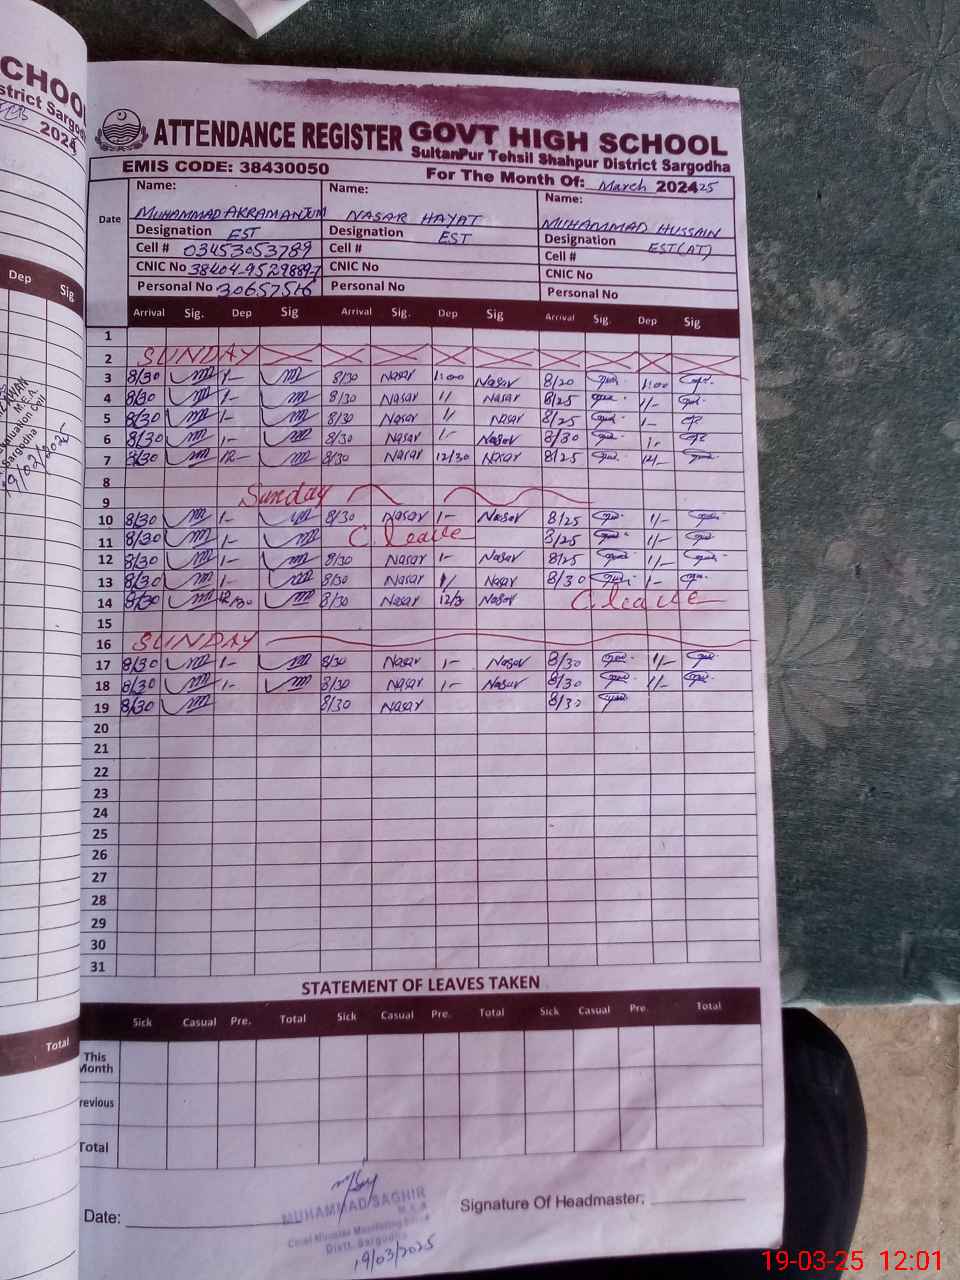 CHOO
strict Sarg
2024
ATTENDANCE REGISTER GOVT HIGH SCHOOL
SultanPur Tehsil Shahpur District Sargodha
EMIS CODE: 38430050
For The Month Of: March 202425
Date
Name: Name: Name:
MUHAMMAD AKRAM ANJUM NASAR HAYAT MUHAMMAD HUSSAIN
Designation EST Designation EST Designation EST(AT)
Cell # 03453053789 Cell # Cell #
CNIC No 38404-9529889-7 CNIC No CNIC No
Personal No 30657516 Personal No Personal No
Dep Sig
Arrival Sig. Dep Sig Arrival Sig. Dep Sig Arrival Sig. Dep Sig
1
2 SUNDAY
3 8/30 1- 8/30 Nasar 1:00 Nasar 8/20 1:00
4 8/30 1- 8/30 Nasar 1/ Nasar 8/25 1/-
5 8/30 1- 8/30 Nasar 1/ Nasar 8/25 1-
6 8/30 1- 8/30 Nasar 1- Nasar 8/30 1-
7 8/30 12- 8/30 Nasar 12/30 Nasar 8/25 12/-
8
9 Sunday
10 8/30 1- 8/30 Nasar 1- Nasar 8/25 1/-
11 8/30 1- C.leave 8/25 1/-
12 8/30 1- 8/30 Nasar 1- Nasar 8/25 1/-
13 8/30 1- 8/30 Nasar 1/ Nasar 8/30 1-
14 8/30 12/30 8/30 Nasar 12/3 Nasar C.leave
15
16 SUNDAY
17 8/30 1- 8/30 Nasar 1- Nasar 8/30 1/-
18 8/30 1- 8/30 Nasar 1- Nasar 8/30 1/-
19 8/30 8/30 Nasar 8/30
20
21
22
23
24
25
26
27
28
29
30
31
M.E.A.
Sargodha
19/02/2025
STATEMENT OF LEAVES TAKEN
Sick Casual Pre. Total Sick Casual Pre. Total Sick Casual Pre. Total
Total
This
Month
revious
Total
MUHAMMAD SAGHIR
M.E.A
Chief Minister Monitoring
Distt. Sargodha
19/03/2025
Date:
Signature Of Headmaster:
19-03-25 12:01